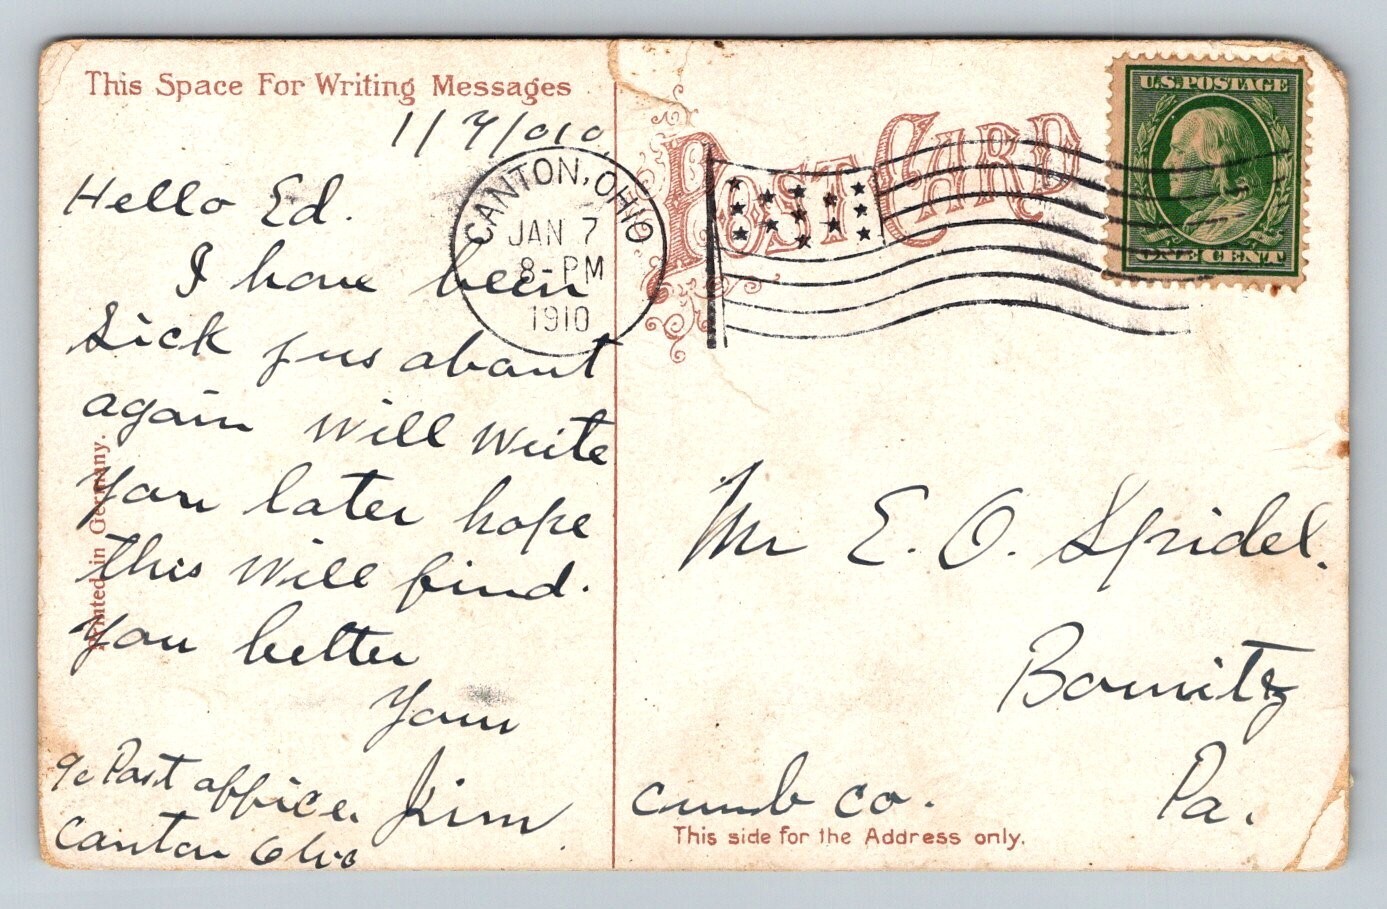 This Space For Writing Messages
1/7/010
Hello Ed.
I have been
Sick jus about
again will write
you later hope
this will find.
you better
Your
Jim
℅ Post office.
Canton Ohio
Printed in Germany.
CANTON, OHIO
JAN 7
8-PM
1910
POST CARD
U.S. POSTAGE
ONE CENT
Mr E. O. Spidel.
Bowmitz
Pa.
cumb co.
This side for the Address only.